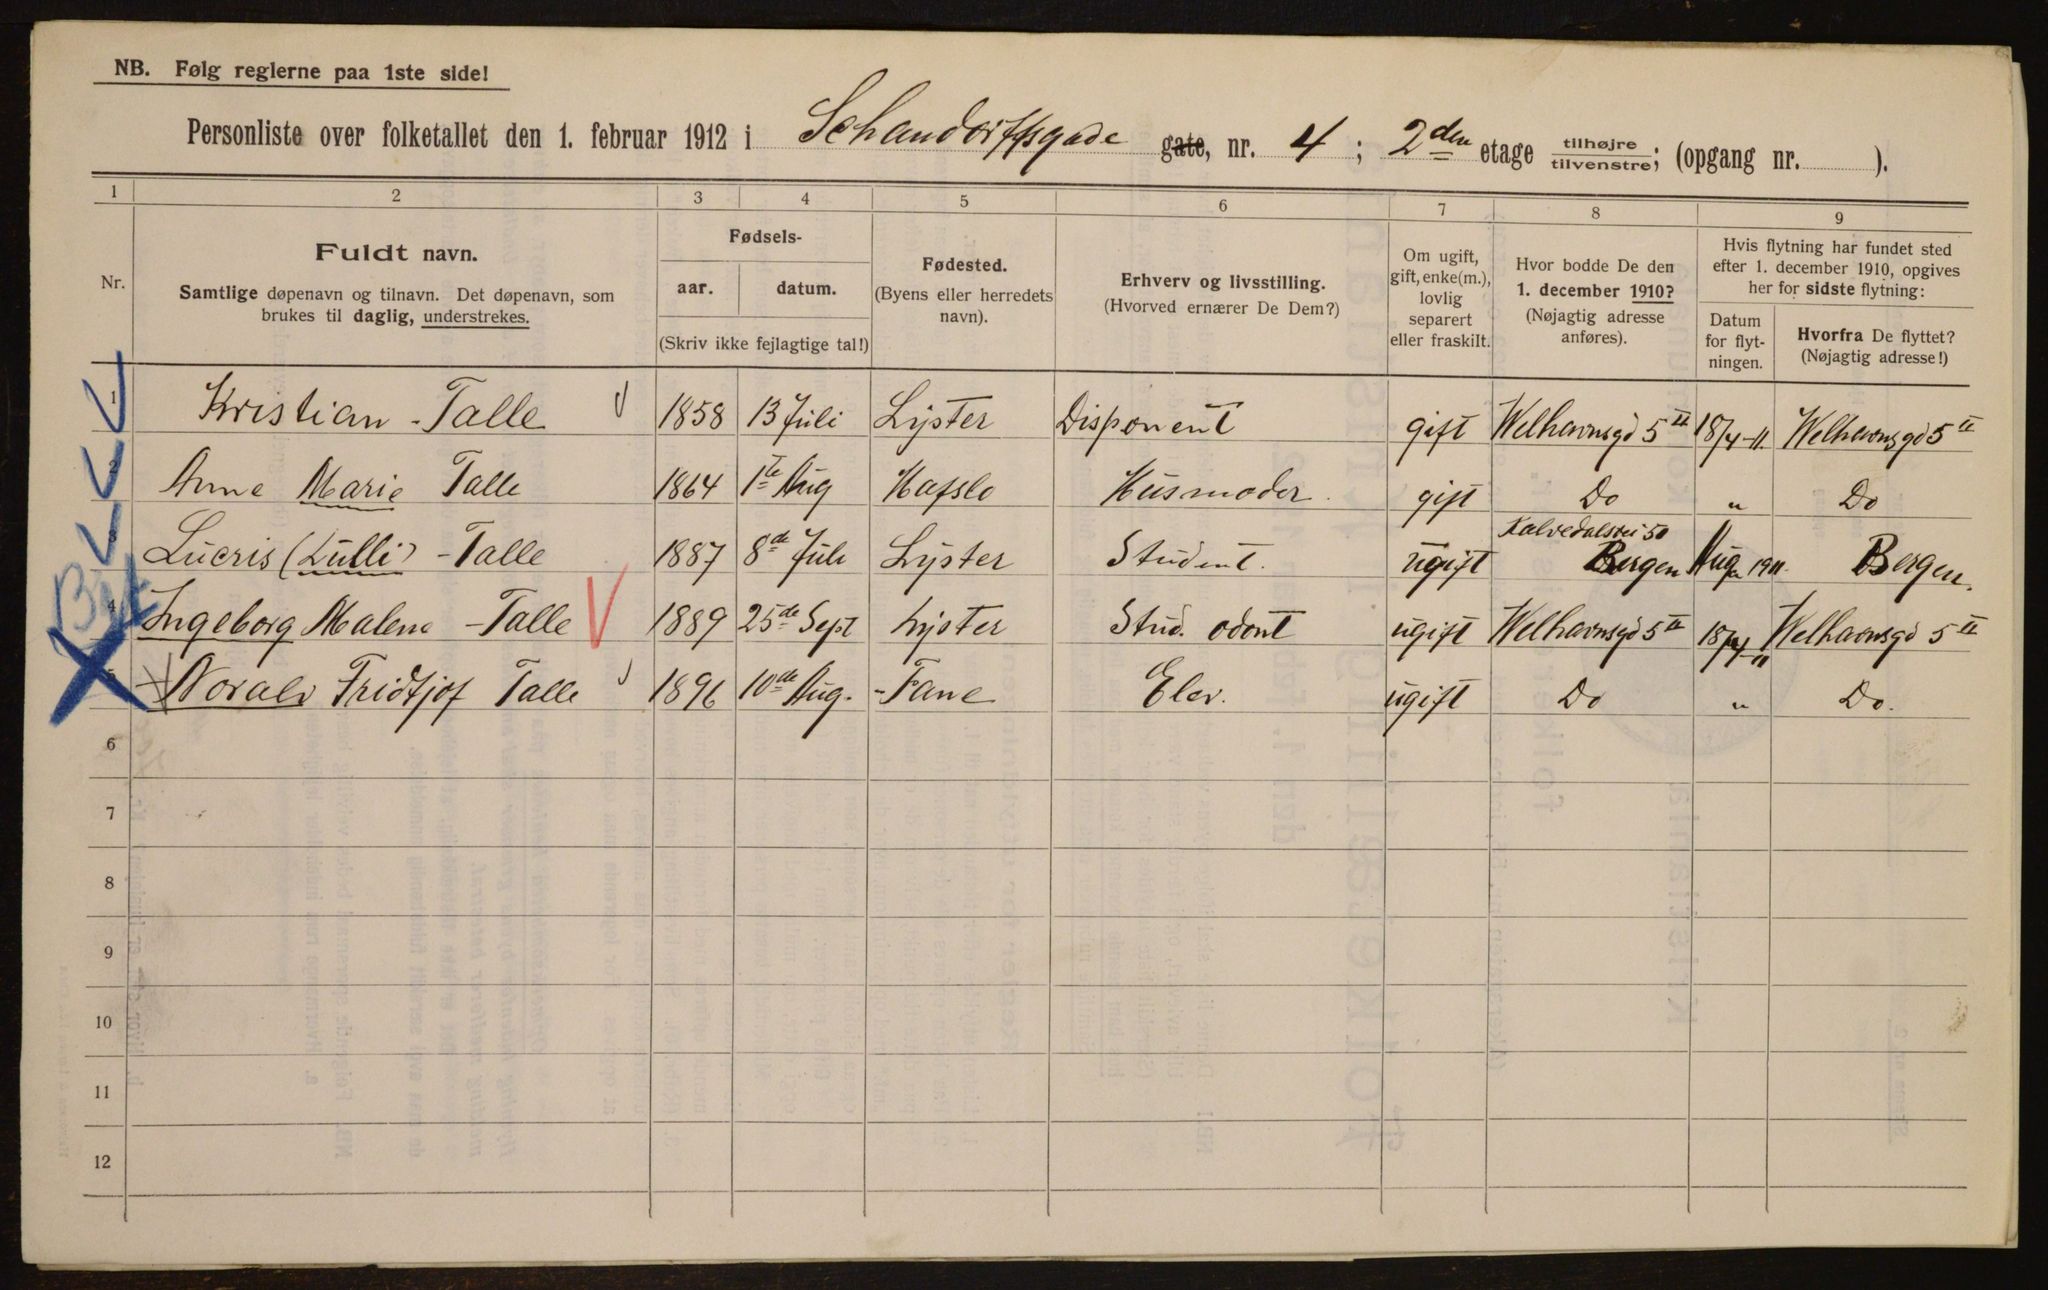 NB. Følg reglerne paa 1ste side!
Personliste over folketallet den 1. februar 1912 i Schandorffsgade gate, nr. 4; 2den etage tilhøjre tilvenstre; (opgang nr. ).
1 2 3 4 5 6 7 8 9
Nr.
Fuldt navn.
Samtlige døpenavn og tilnavn. Det døpenavn, som
brukes til daglig, understrekes.
Fødsels-
aar. datum.
(Skriv ikke fejlagtige tal!)
Fødested.
(Byens eller herredets
navn).
Erhverv og livsstilling.
(Hvorved ernærer De Dem?)
Om ugift,
gift, enke(m.),
lovlig
separert
eller fraskilt.
Hvor bodde De den
1. december 1910?
(Nøjagtig adresse
anføres).
Hvis flytning har fundet sted
efter 1. december 1910, opgives
her for sidste flytning:
Datum
for flyt-
ningen.
Hvorfra De flyttet?
(Nøjagtig adresse!)
1 Kristian Talle 1858 13 Juli Lyster Disponent gift Welhavnsgd 5 II 18/4-11. Welhavnsgd 5 II
2 Anne Marie Talle 1864 1te Aug Hafslo Husmoder. gift Do " Do
Kalvedalsvei 50
3 Lucris (Lulli) Talle 1887 8de Juli Lyster Student. ugift Bergen Aug 1911. Bergen.
4 Ingeborg Malene Talle 1889 25de Sept Lyster Stud. odont ugift Welhavnsgd 5 II 18/4-11 Welhavnsgd 5 II
5 Noralv Fridtjof Talle 1896 10de Aug. Fane Elev. ugift Do " Do.
6
7
8
9
10
11
12